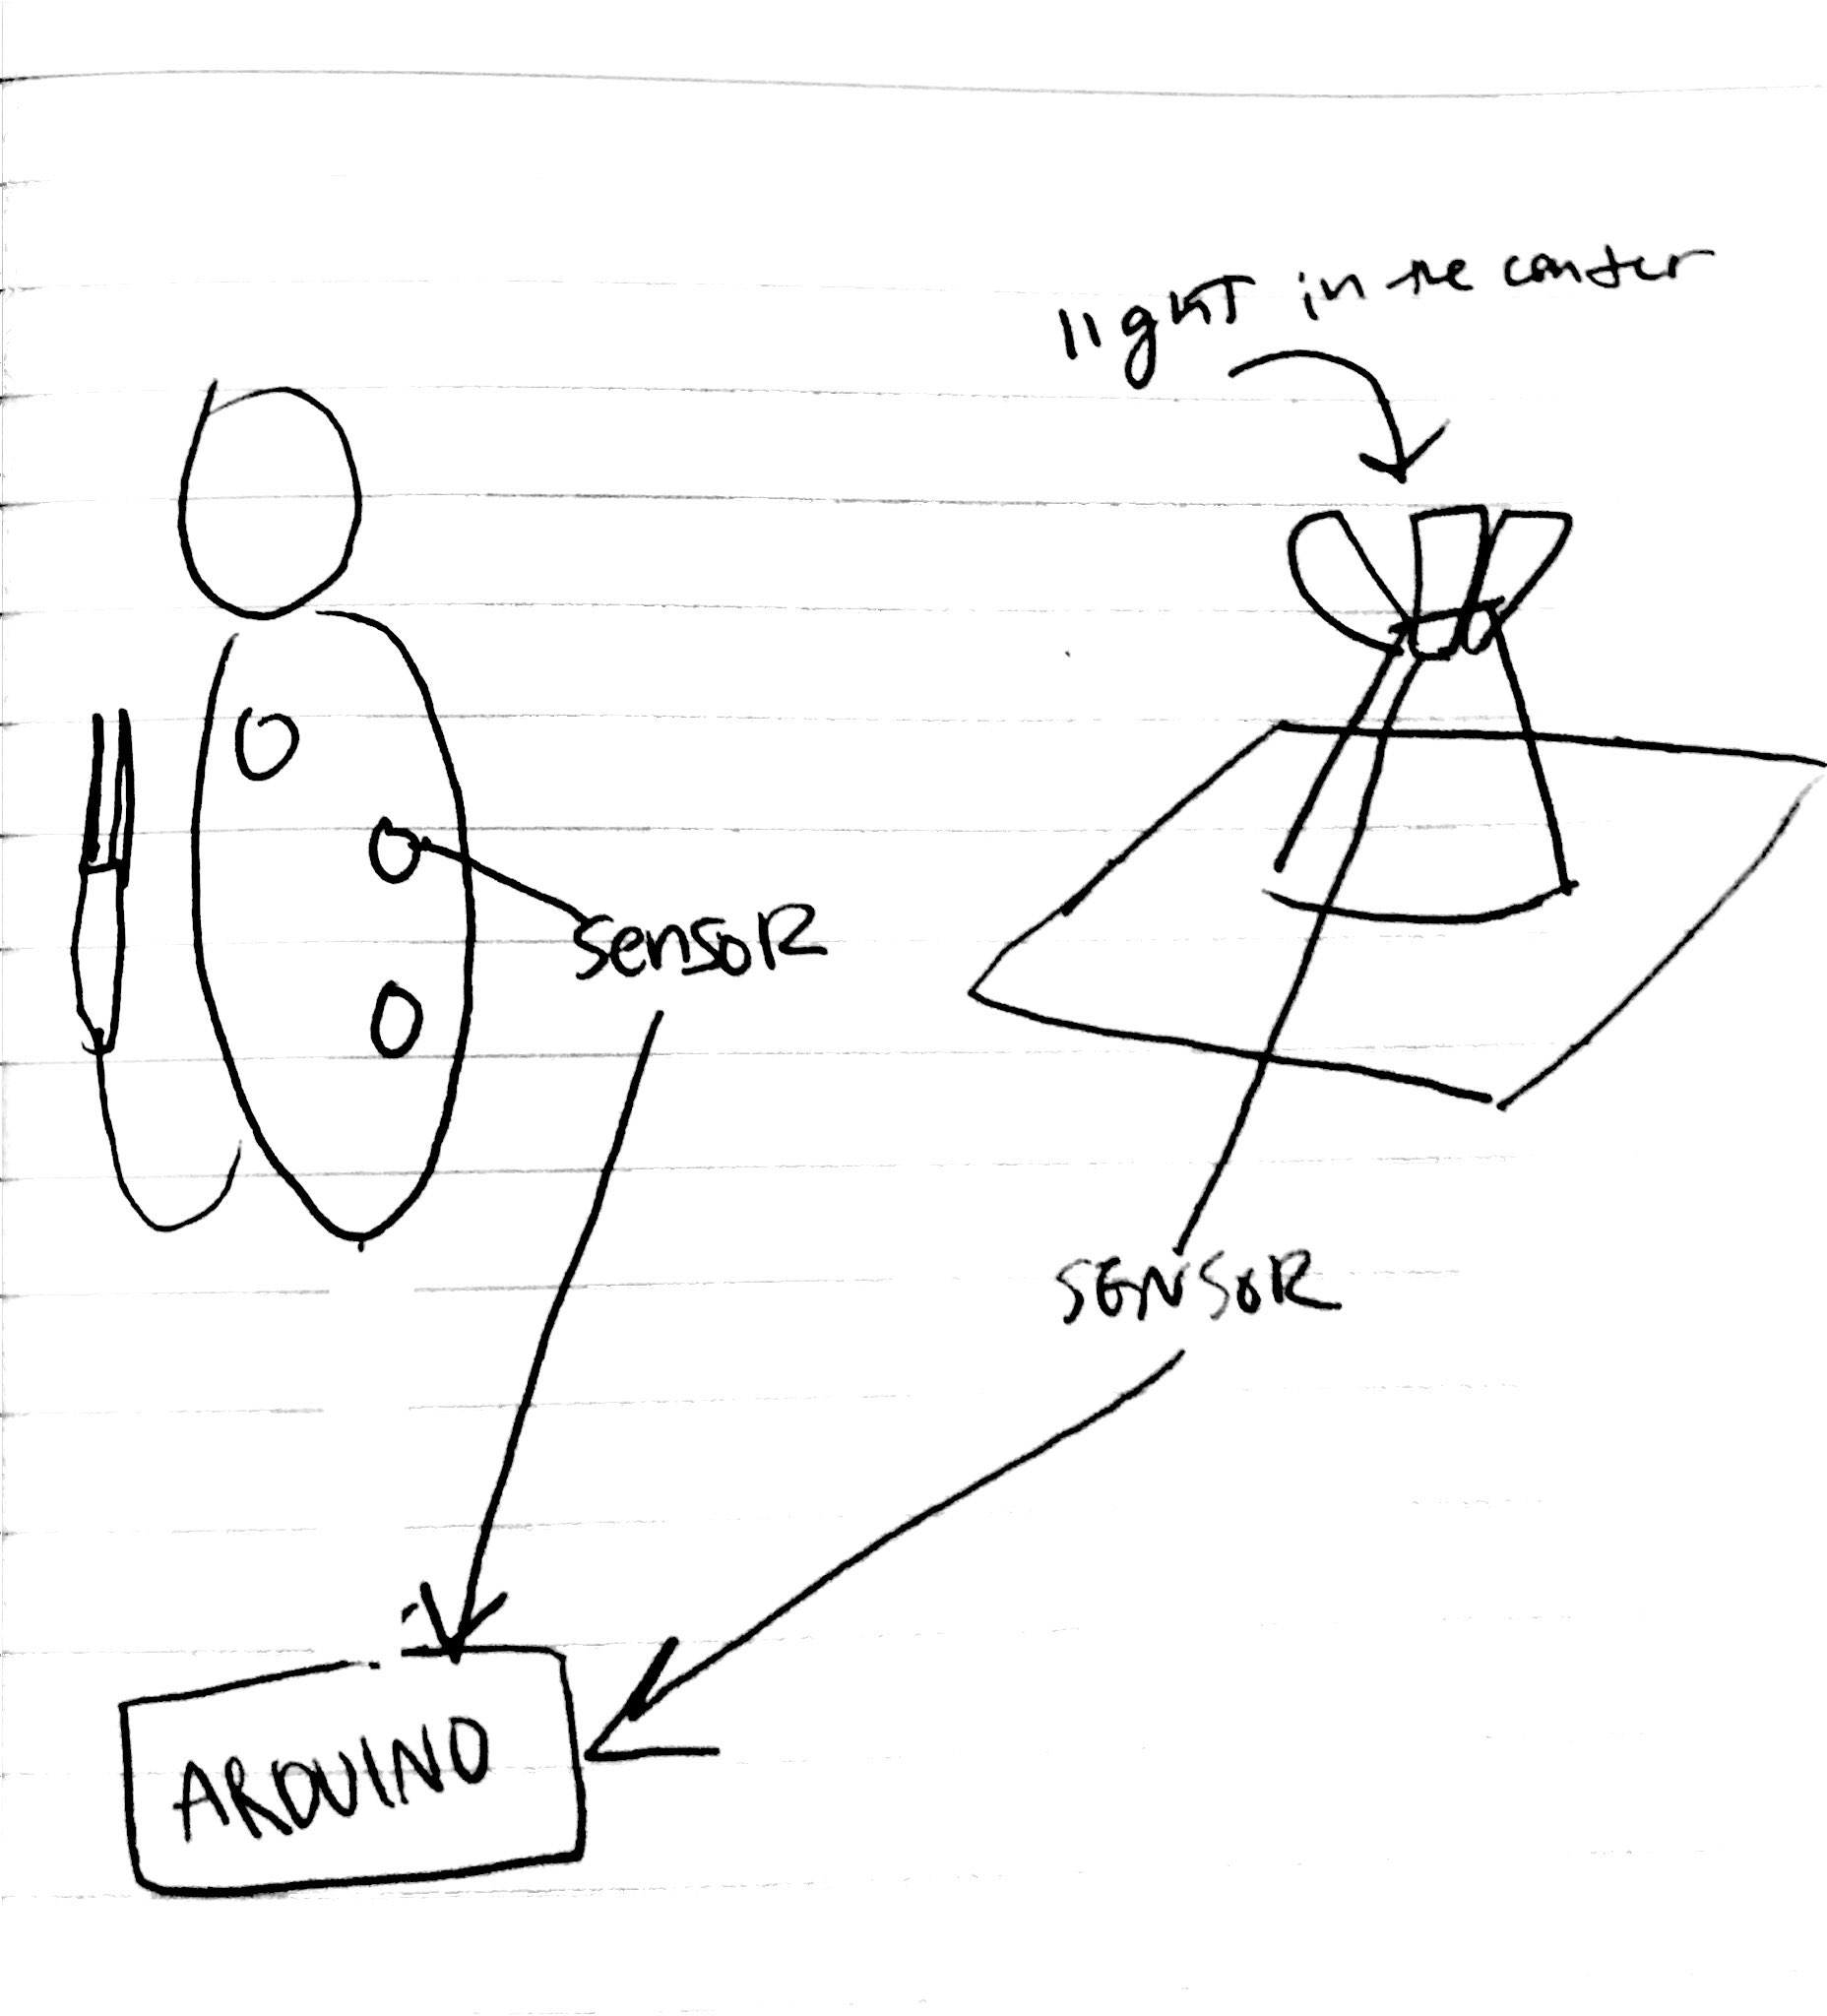 light in the center
sensor
SENSOR
ARDUINO